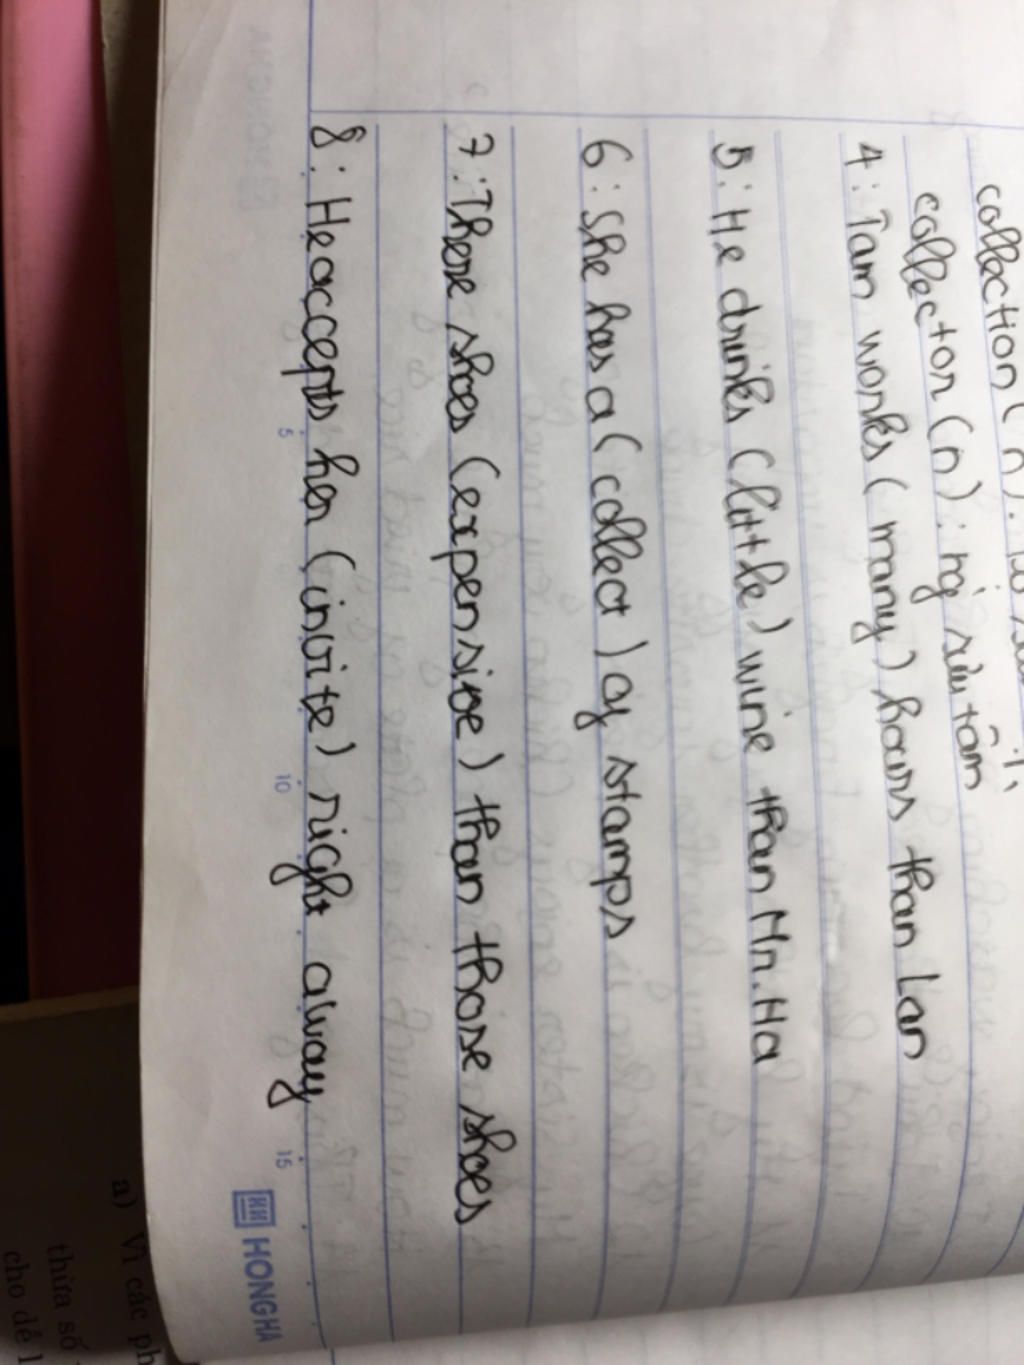 collection (n):
collector (n): ng sưu tầm
4: Tam works (many) hours than Lan
5: He drinks (little) wine than Mr. Ha
6: She has a (collect) of stamps
7: These shoes (expensive) than those shoes
8: He accepts her (invite) right away
5
10
15
HONG HA
a) Vì các ph
thừa số
cho dễ l